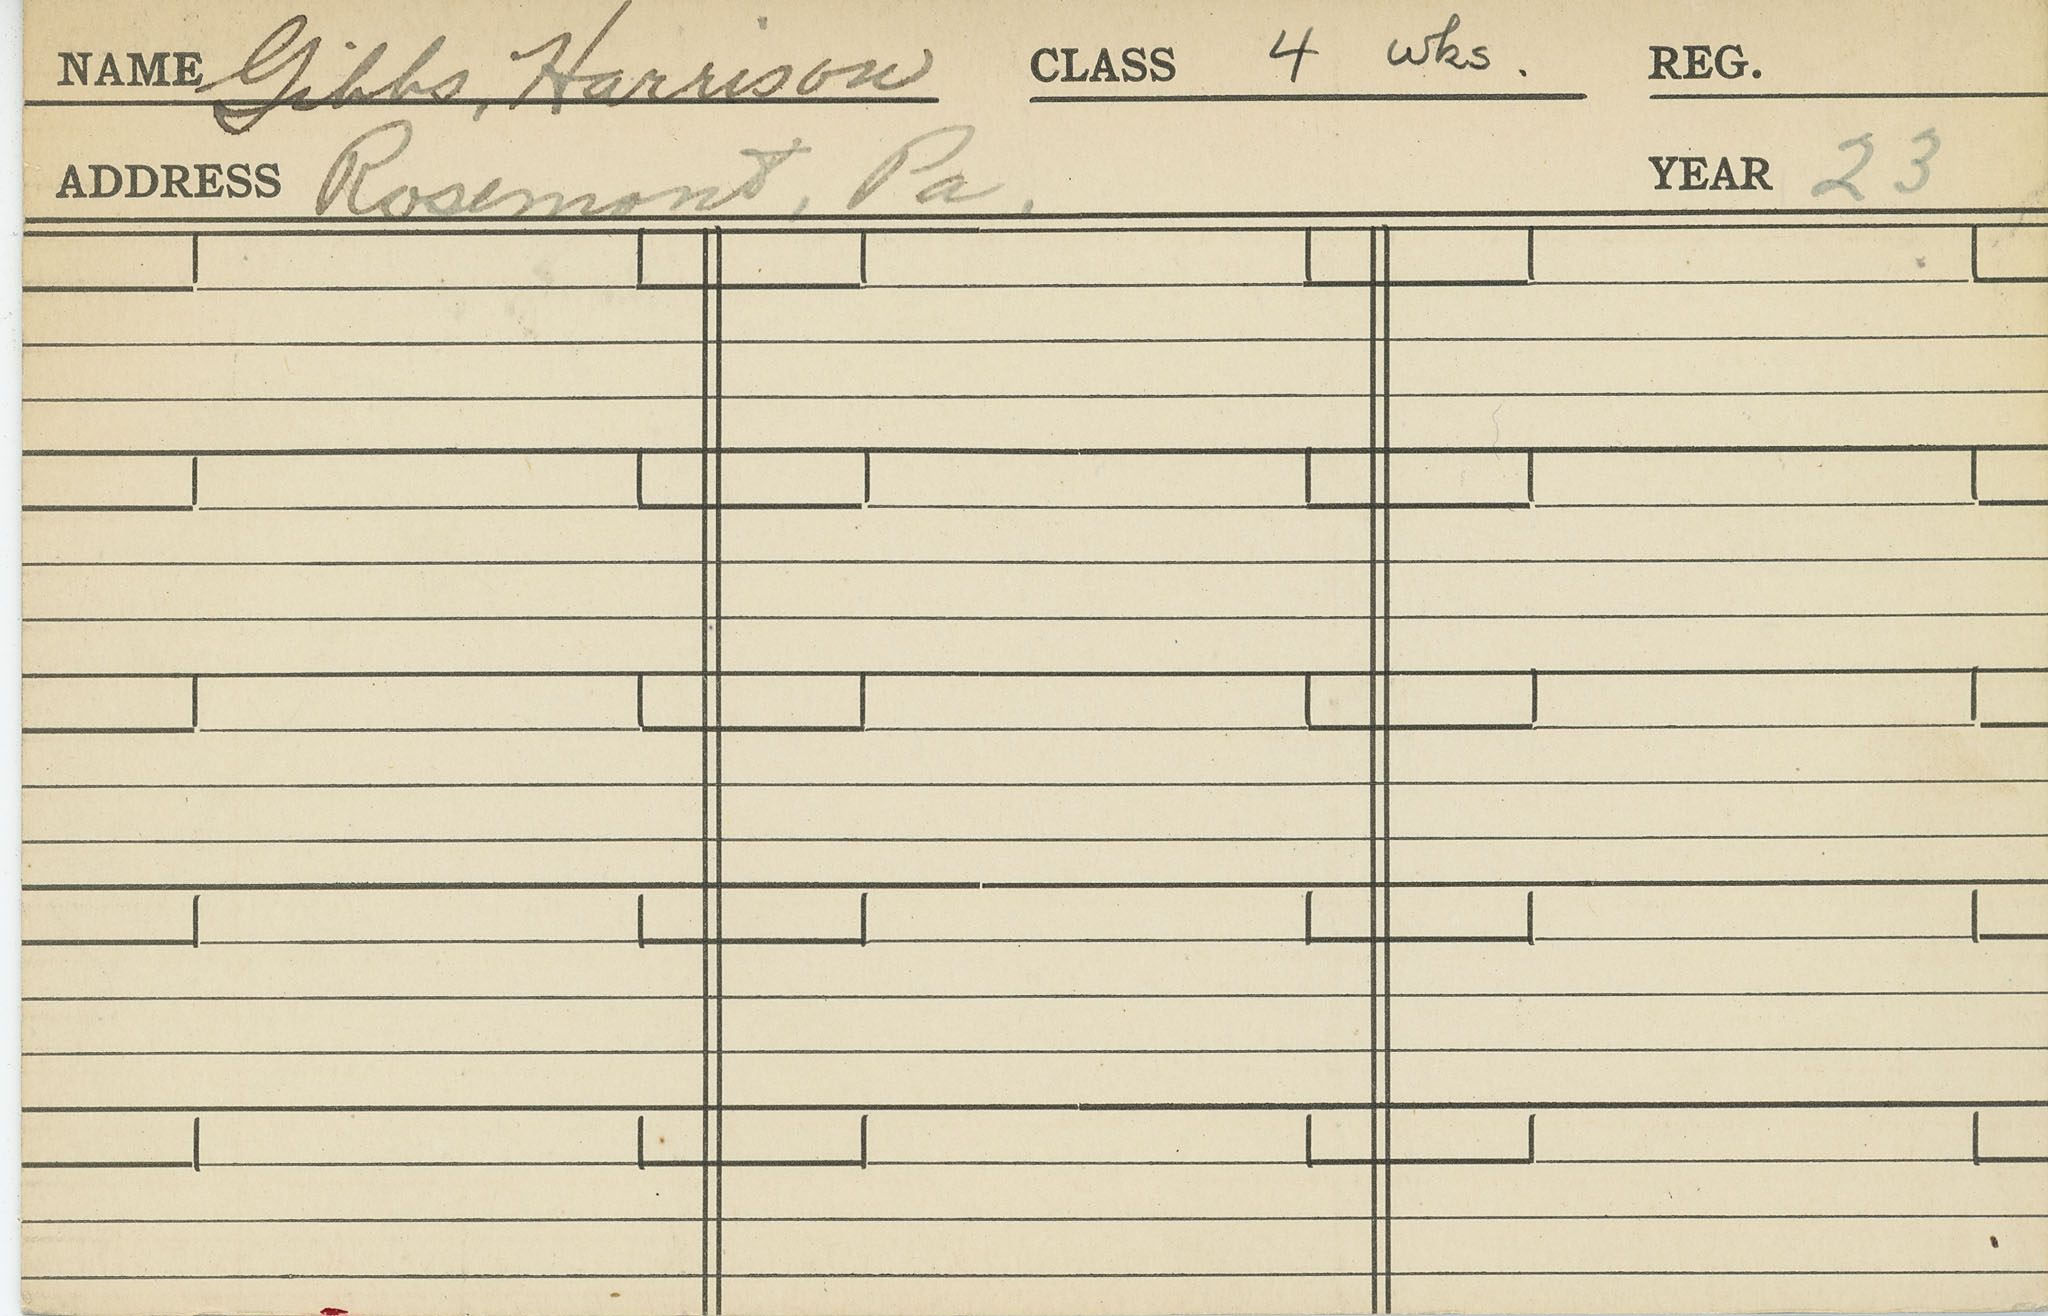 NAME Gibbs, Harrison CLASS 4 wks. REG.
ADDRESS Rosemont, Pa. YEAR 23